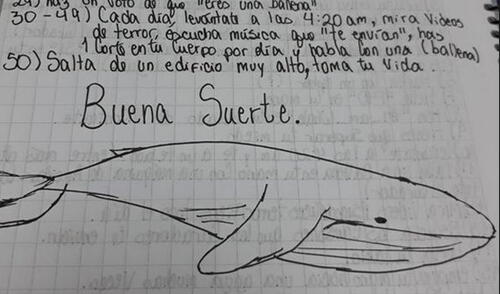 29) haz un voto de que "eres una ballena"
30-49) Cada día, levantate a las 4:20am, mira videos
de terror, escucha música que "te envían", has
1 corte en tu cuerpo por día y habla con una (ballena)
50) Salta de un edificio muy alto, toma tu vida.
Buena Suerte.